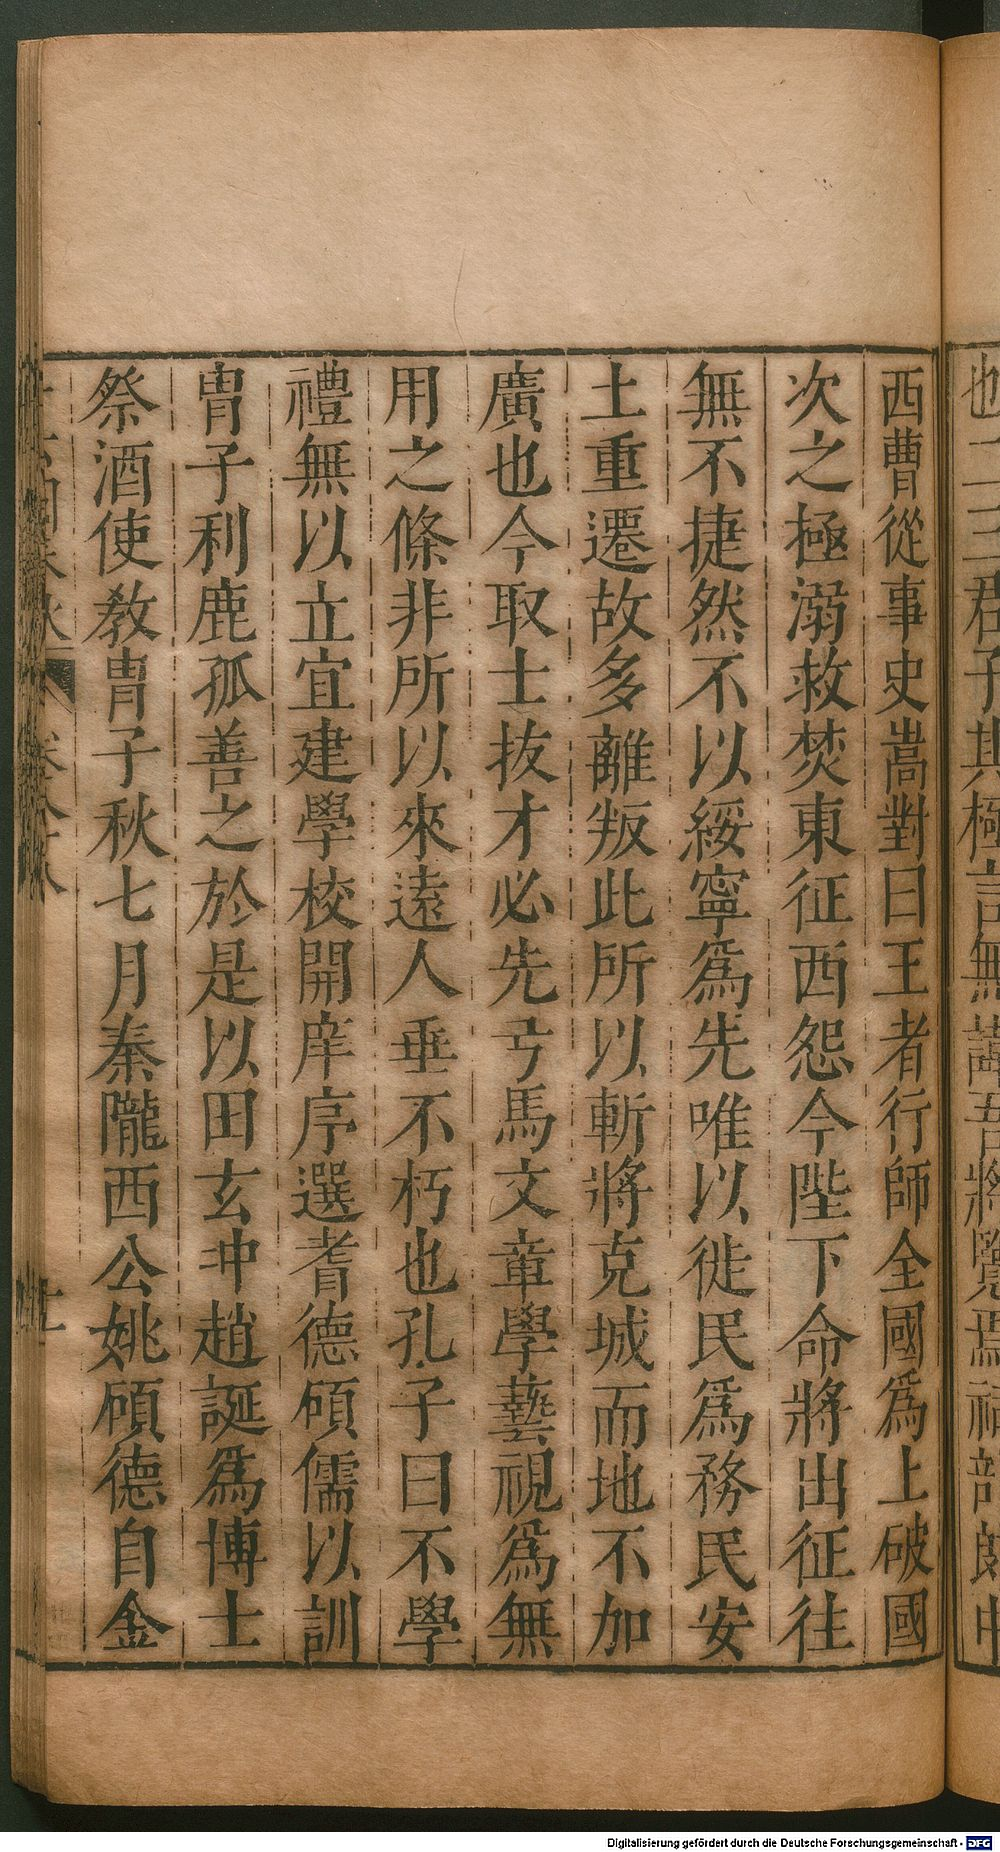 西曹從事史暠對曰王者行師全國爲上破國
次之極溺救焚東征西怨今陛下命將出征往
無不捷然不以綏寧爲先唯以徙民爲務民安
土重遷故多離叛此所以斬將克城而地不加
廣也今取士抜才必先弓馬文章學藝視爲無
用之條非所以來遠人垂不朽也孔子曰不學
禮無以立宜建學校開庠序選耆德碩儒以訓
胄子利鹿孤善之於是以田玄冲趙誕爲博士
祭酒使教胄子秋七月秦隴西公姚碩德自金
Digitalisierung gefördert durch die Deutsche Forschungsgemeinschaft - DFG